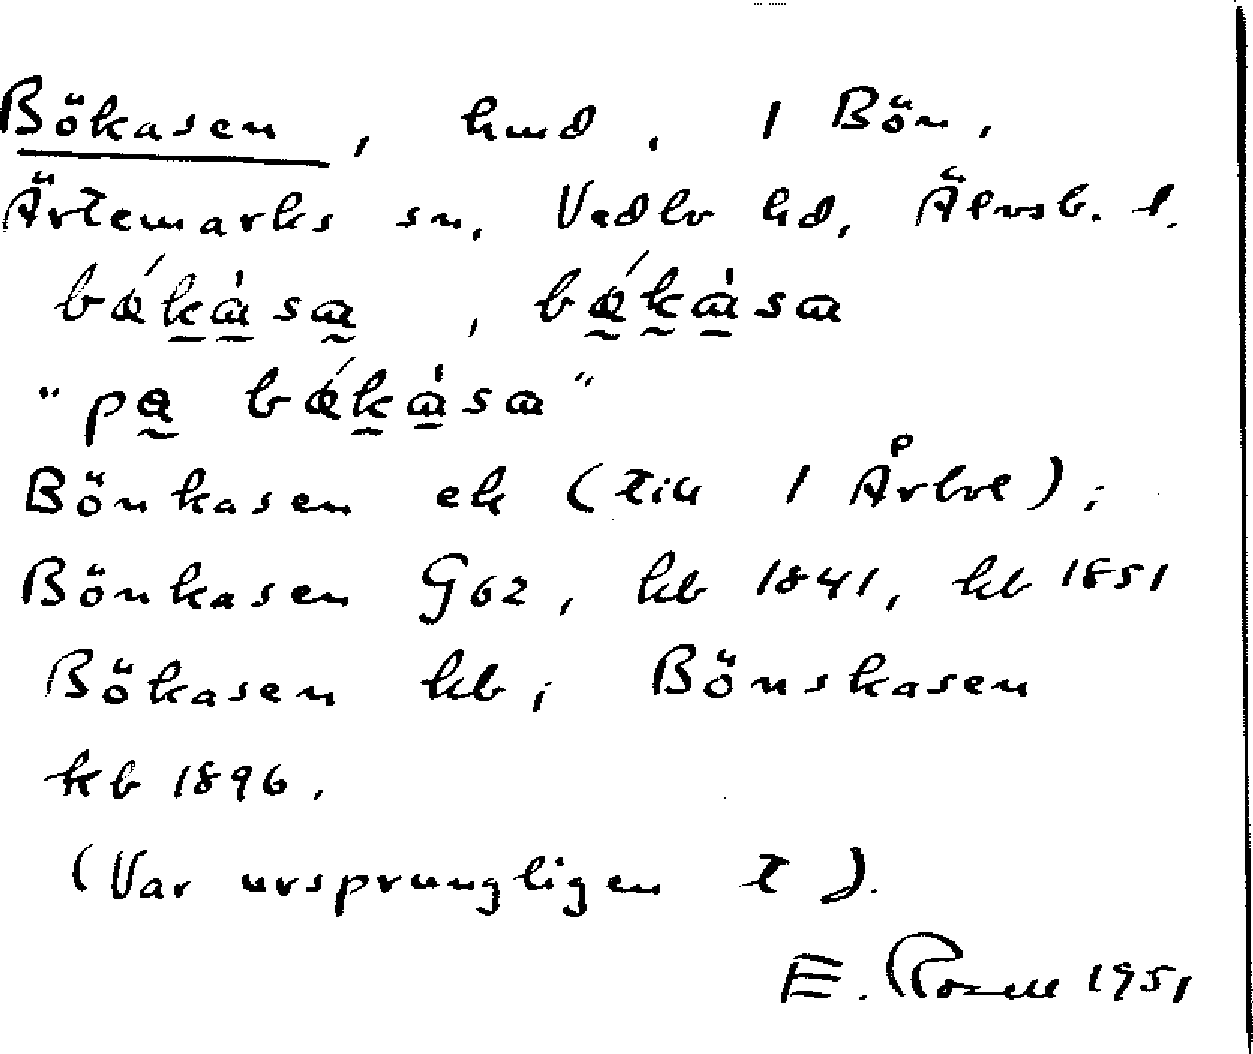 Bökasen, hmd. 1 Bön,
Ärtemarks sn, Vedbo hd, Älvsb. l.
"pa
Bönkasen ek (till 1 Årbol);
Bönkasen G62, kb 1841, kb 1851
Bökasen kb; Bönskasen
kb 1896.
(Var ursprungligen t).
E. Rosell 1951